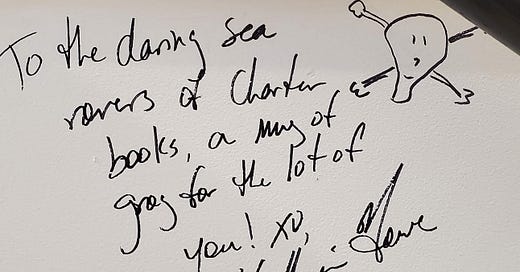 To the daring sea
rovers of Charter
books, a mug of
grog for the lot of
you! XO,